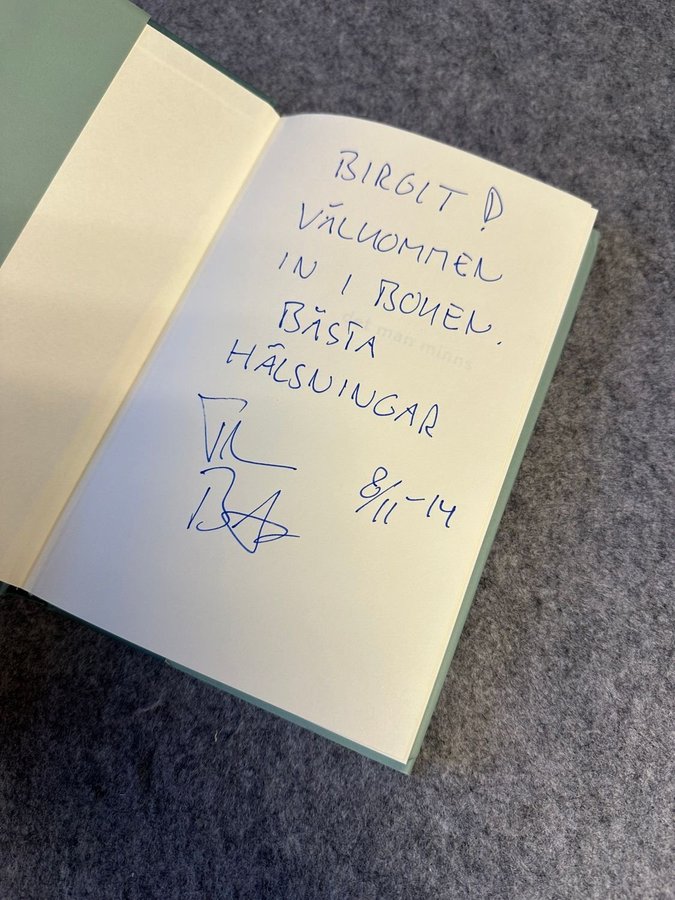 BIRGIT!
VÄLKOMMEN
IN I BOKEN.
det man minns
BÄSTA
HÄLSNINGAR
8/11-14